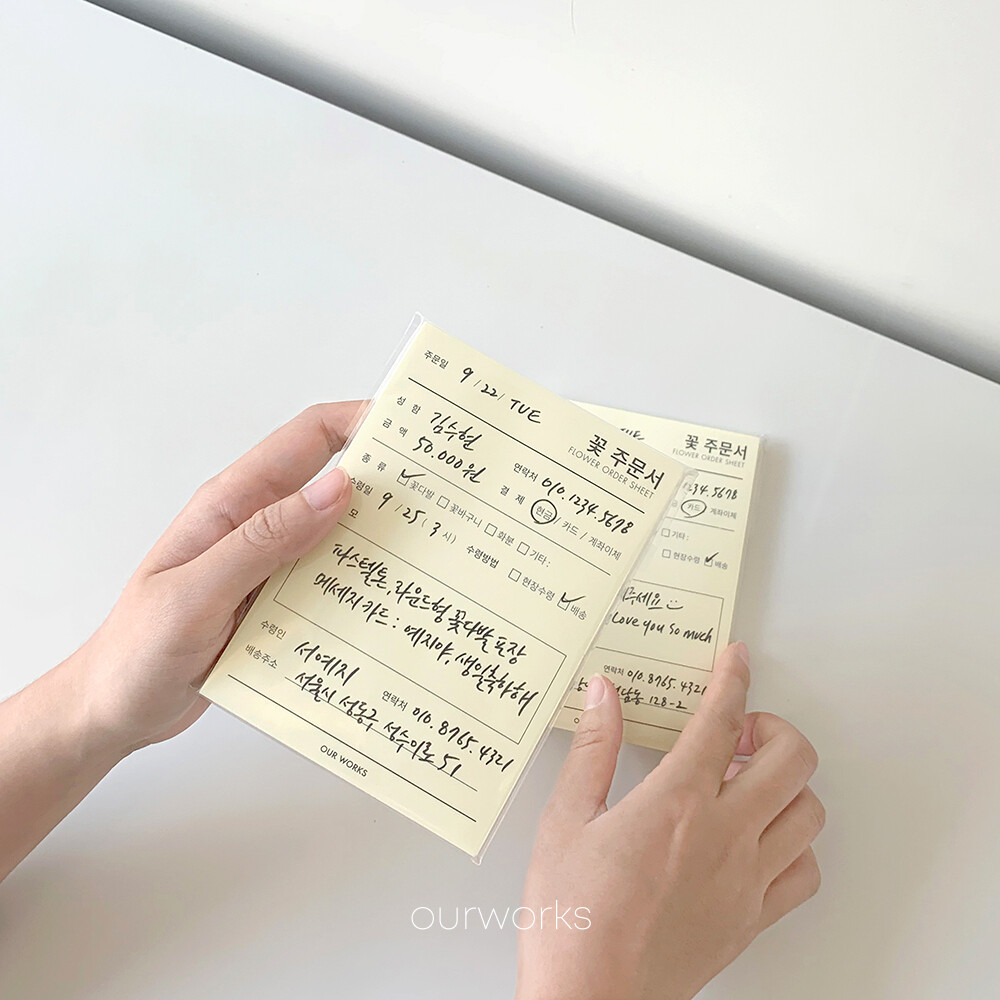 주문일 9/22/ TUE
꽃 주문서
FLOWER ORDER SHEET
성 함 김수현 연락처 010.1234.5678
금 액 50.000원 결 제 현금 / 카드 / 계좌이체
종 류 꽃다발 꽃바구니 화분 기타 :
수령일 9/25 ( 3 시) 수령방법 현장수령 배송
모
파스텔톤, 라운드형 꽃다발 포장
메세지 카드 : 예지야, 생일축하해
수령인 서예지 연락처 010.8765.4321
배송주소 서울시 성동구 성수이로 51
OUR WORKS
TUE
꽃 주문서
FLOWER ORDER SHEET
1234.5678
카드 / 계좌이체
기타 :
현장수령 배송
주세요
Love you so much
연락처 010.8765.4321
128-2
ourworks